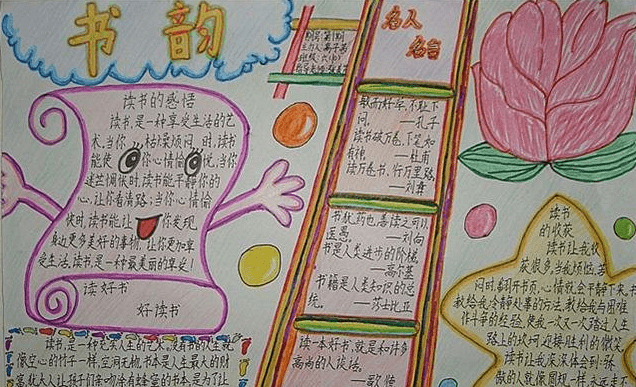 书韵
名人
名言
读书的感悟
读书,是一种享受生活的艺
术,当你枯燥烦闷时,读书
能使你心情愉悦,当你
迷茫惆怅时,读书能平静你的
心,让你看清路;当你心情愉
快时,读书能让你发现
身边更多美好的事物,让你更加享
受生活,读书,是一种最美丽的享受!
读好书
好读书
敏而好学,不耻下
问。——孔子
读书破万卷,下笔如
有神。——杜甫
读万卷书,行万里路。
——刘彝
书犹药也,善读之可以
医愚。——刘向
书是人类进步的阶梯。
——高尔基
书籍是人类知识的总
统。——莎士比亚
读一本好书,就是和许多
高尚的人谈话。
——歌德
读书
的收获
读书让我收
获很多,当我烦恼、苦
闷时,翻开书页,心情就会平静下来,书
教给我冷静处事的方法,教给我与困难
作斗争的经验,使我一次又一次踏过人生
路上的坎坷,迎接胜利的微笑
读书让我深深体会到:张
读书,是一种充实人生的艺术,没有书的人生就
像空心的竹子一样,空洞无物,书本是人生最大的财